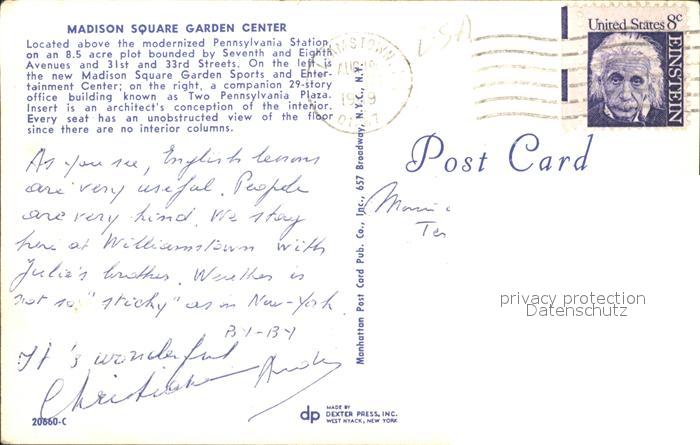 MADISON SQUARE GARDEN CENTER
Located above the modernized Pennsylvania Station
on an 8.5 acre plot bounded by Seventh and Eighth
Avenues and 31st and 33rd Streets. On the left is
the new Madison Square Garden Sports and Enter-
tainment Center; on the right, a companion 29-story
office building known as Two Pennsylvania Plaza.
Insert is an architect's conception of the interior.
Every seat has an unobstructed view of the floor
since there are no interior columns.
As you see, English lessons
are very useful. People
are very kind. We stay
here at Williamstown with
Julia's brother. Weather is
not so "sticky" as in New-York.
BY-BY
It's wonderful
Christiane
20660-C
Manhattan Post Card Pub. Co., Inc., 657 Broadway, N.Y.C., N.Y.
dp MADE BY
DEXTER PRESS, INC.
WEST NYACK, NEW YORK
USA
AUG
United States 8c
EINSTEIN
Post Card
privacy protection
Datenschutz